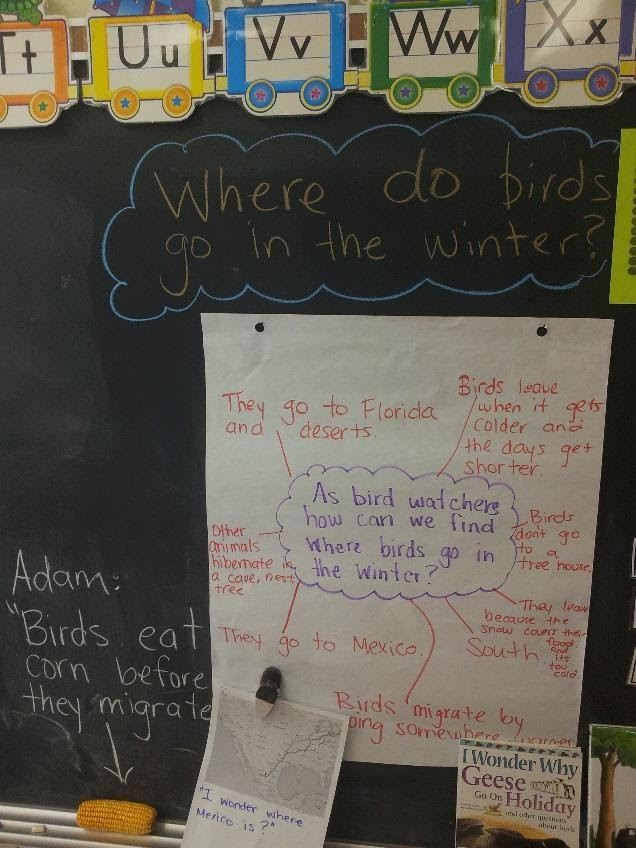 Tt Uu Vv Ww Xx
Where do birds
go in the winter?
They go to Florida
and deserts.
Birds leave
when it gets
colder and
the days get
shorter.
As bird watchers
how can we find
where birds go in
the winter?
Other
animals
hibernate in
a cave, nest,
tree
Birds
don't go
to a
tree house
They leave
because the
snow covers their
food
and
its
too
cold.
They go to Mexico.
South.
Birds migrate by
going somewhere
Adam:
"Birds eat
corn before
they migrate
"I wonder where
Mexico is?"
I Wonder Why
Geese
Go On Holiday
and other questions
about birds